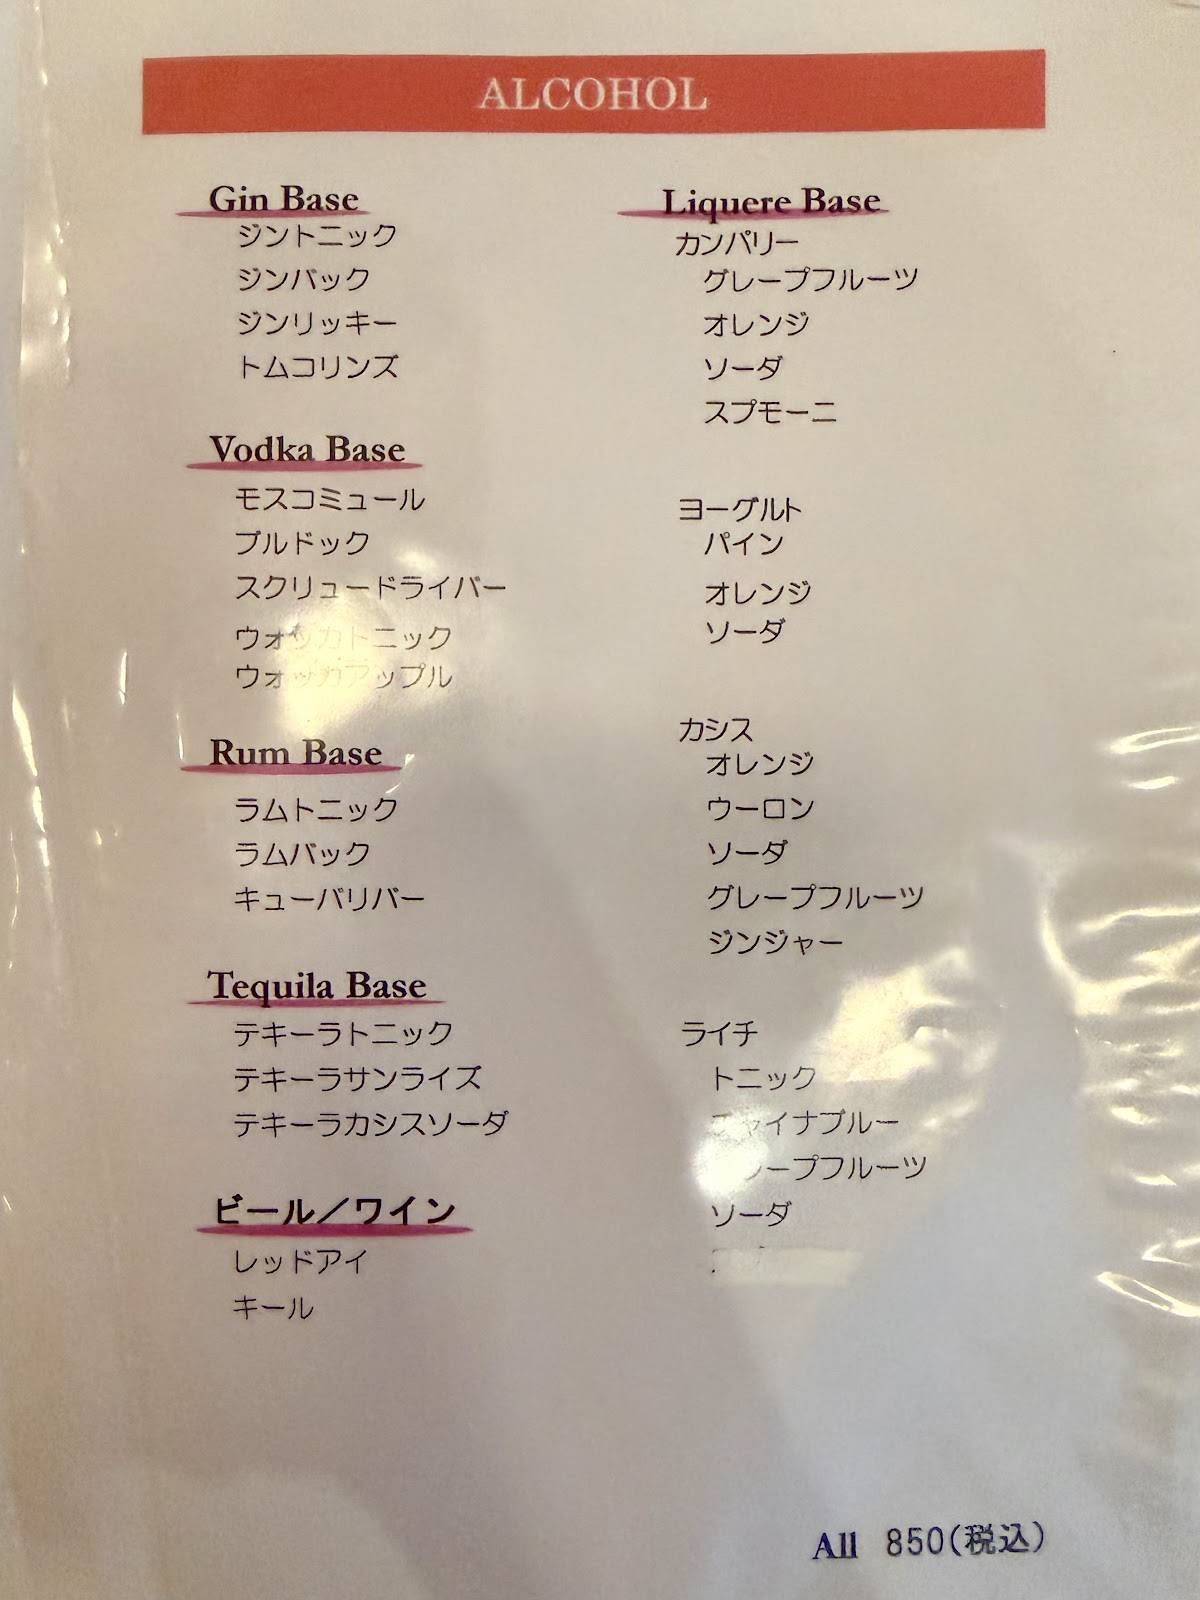 ALCOHOL
Gin Base
ジントニック
ジンバック
ジンリッキー
トムコリンズ
Vodka Base
モスコミュール
ブルドック
スクリュードライバー
ウォッカトニック
ウォッカアップル
Rum Base
ラムトニック
ラムバック
キューバリバー
Tequila Base
テキーラトニック
テキーラサンライズ
テキーラカシスソーダ
ビール／ワイン
レッドアイ
キール
Liquere Base
カンパリー
グレープフルーツ
オレンジ
ソーダ
スプモーニ
ヨーグルト
パイン
オレンジ
ソーダ
カシス
オレンジ
ウーロン
ソーダ
グレープフルーツ
ジンジャー
ライチ
トニック
チャイナブルー
グレープフルーツ
ソーダ
All 850(税込)